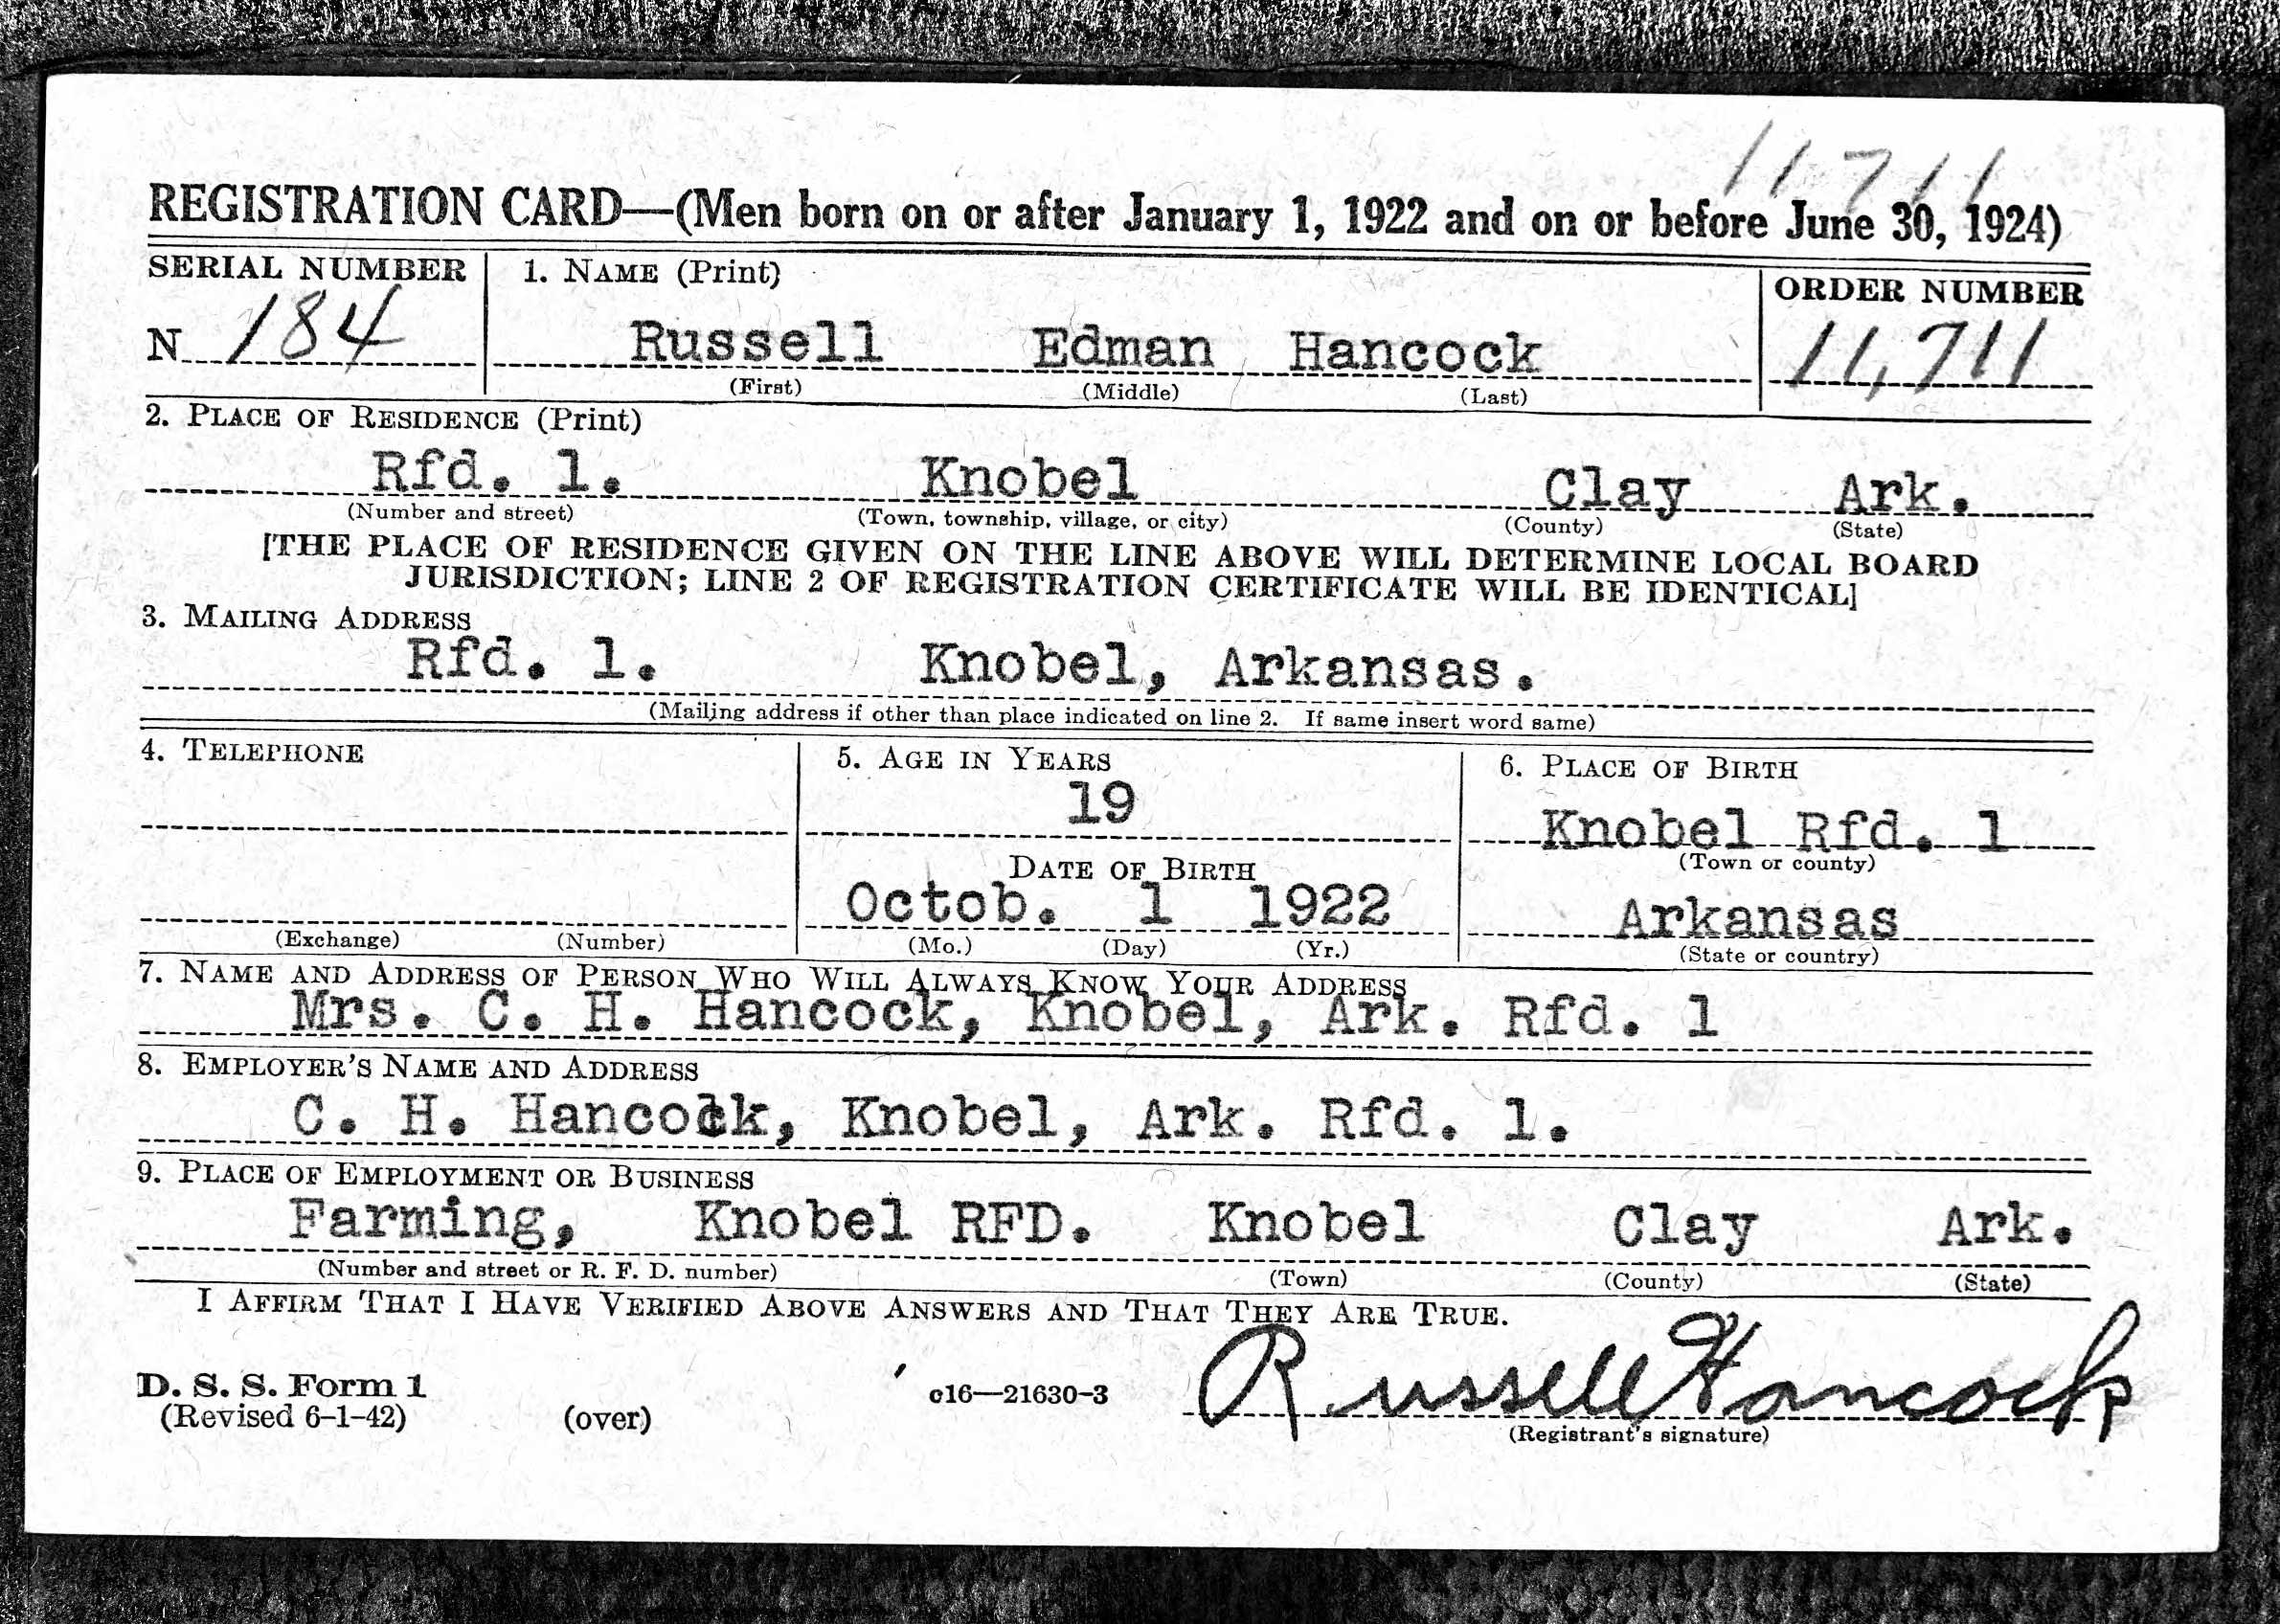 11711
REGISTRATION CARD—(Men born on or after January 1, 1922 and on or before June 30, 1924)
SERIAL NUMBER
1. NAME (Print)
ORDER NUMBER
N 184
Russell Edman Hancock
11,711
(First) (Middle) (Last)
2. PLACE OF RESIDENCE (Print)
Rfd. 1. Knobel Clay Ark.
(Number and street) (Town, township, village, or city) (County) (State)
[THE PLACE OF RESIDENCE GIVEN ON THE LINE ABOVE WILL DETERMINE LOCAL BOARD
JURISDICTION; LINE 2 OF REGISTRATION CERTIFICATE WILL BE IDENTICAL]
3. MAILING ADDRESS
Rfd. 1. Knobel, Arkansas.
(Mailing address if other than place indicated on line 2. If same insert word same)
4. TELEPHONE
5. AGE IN YEARS
6. PLACE OF BIRTH
19
Knobel Rfd. 1
(Town or county)
DATE OF BIRTH
Octob. 1 1922
Arkansas
(Exchange) (Number)
(Mo.) (Day) (Yr.)
(State or country)
7. NAME AND ADDRESS OF PERSON WHO WILL ALWAYS KNOW YOUR ADDRESS
Mrs. C. H. Hancock, Knobel, Ark. Rfd. 1
8. EMPLOYER'S NAME AND ADDRESS
C. H. Hancock, Knobel, Ark. Rfd. 1.
9. PLACE OF EMPLOYMENT OR BUSINESS
Farming, Knobel RFD. Knobel Clay Ark.
(Number and street or R. F. D. number) (Town) (County) (State)
I AFFIRM THAT I HAVE VERIFIED ABOVE ANSWERS AND THAT THEY ARE TRUE.
D. S. S. Form 1
(Revised 6-1-42) (over)
c16—21630-3
Russell Hancock
(Registrant's signature)